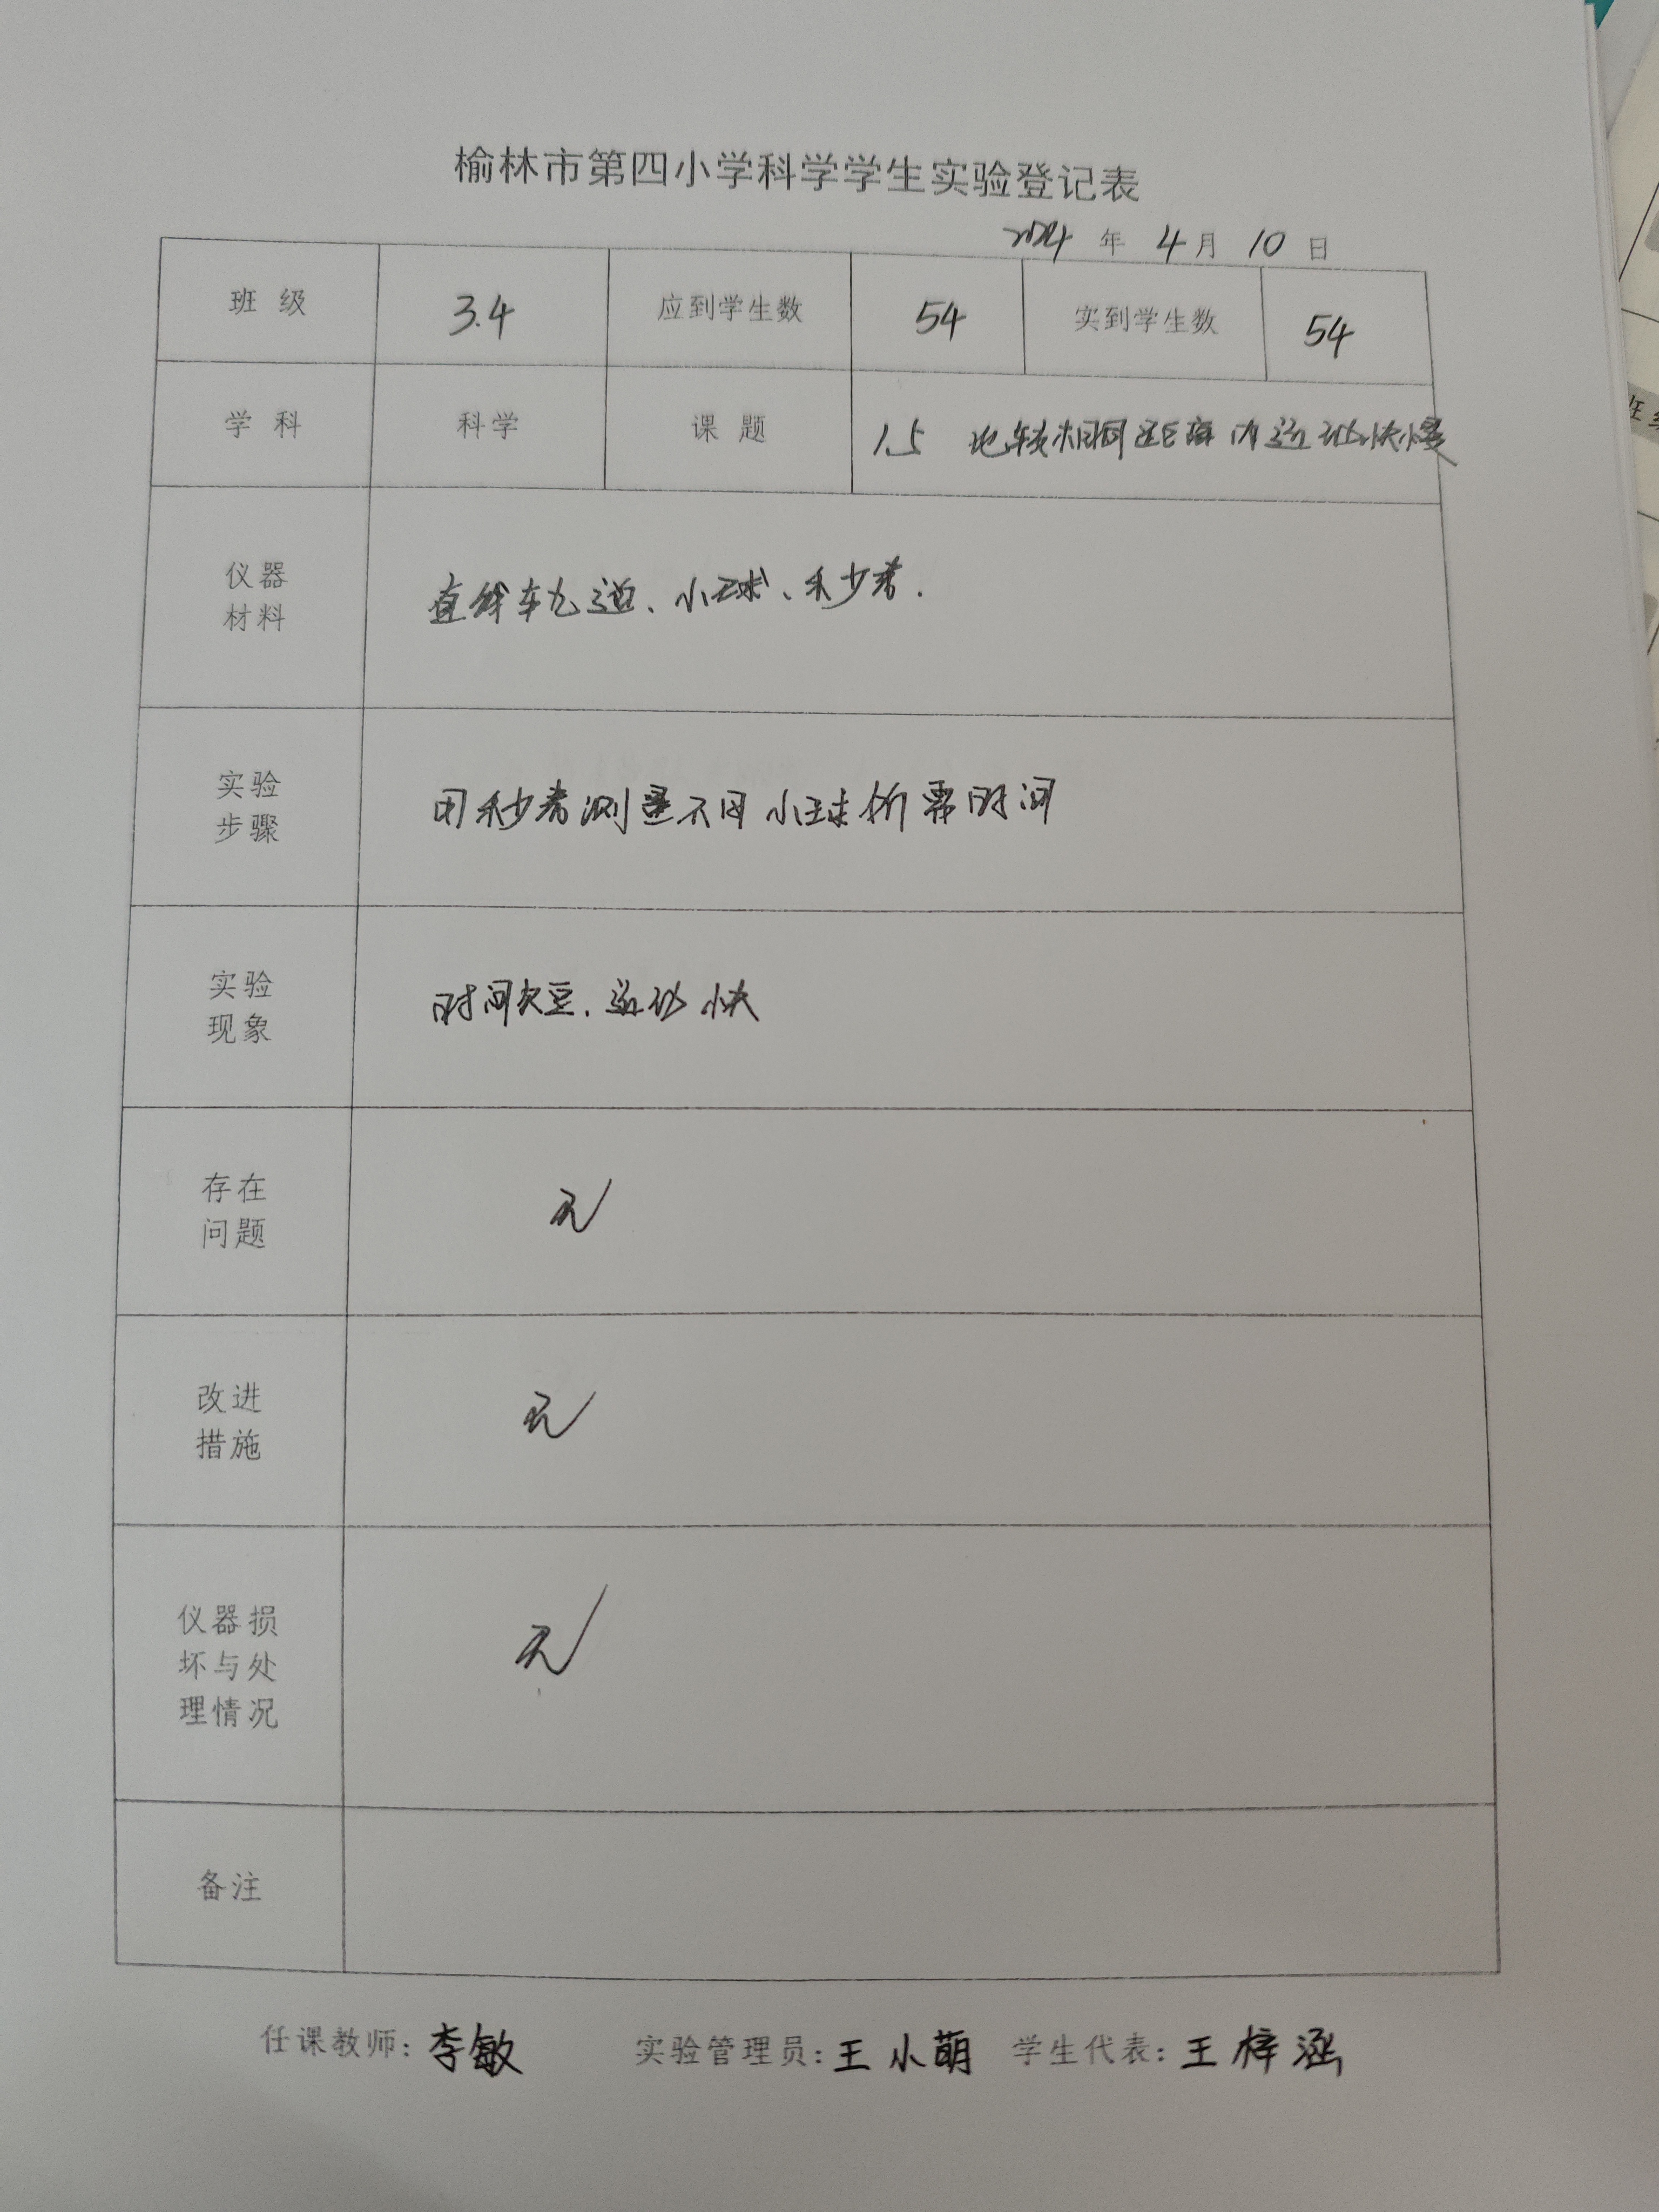 榆林市第四小学科学学生实验登记表
2024 年 4 月 10 日
班 级 3.4 应到学生数 54 实到学生数 54
学 科 科学 课 题 1.5 比较相同距离内运动快慢
仪器
材料
直线轨道、小球、秒表.
实验
步骤
用秒表测量不同小球所需时间
实验
现象
时间短.运动快
存在
问题
无
改进
措施
无
仪器损
坏与处
理情况
无
备注
任课教师：李敏 实验管理员：王小萌 学生代表：王梓涵